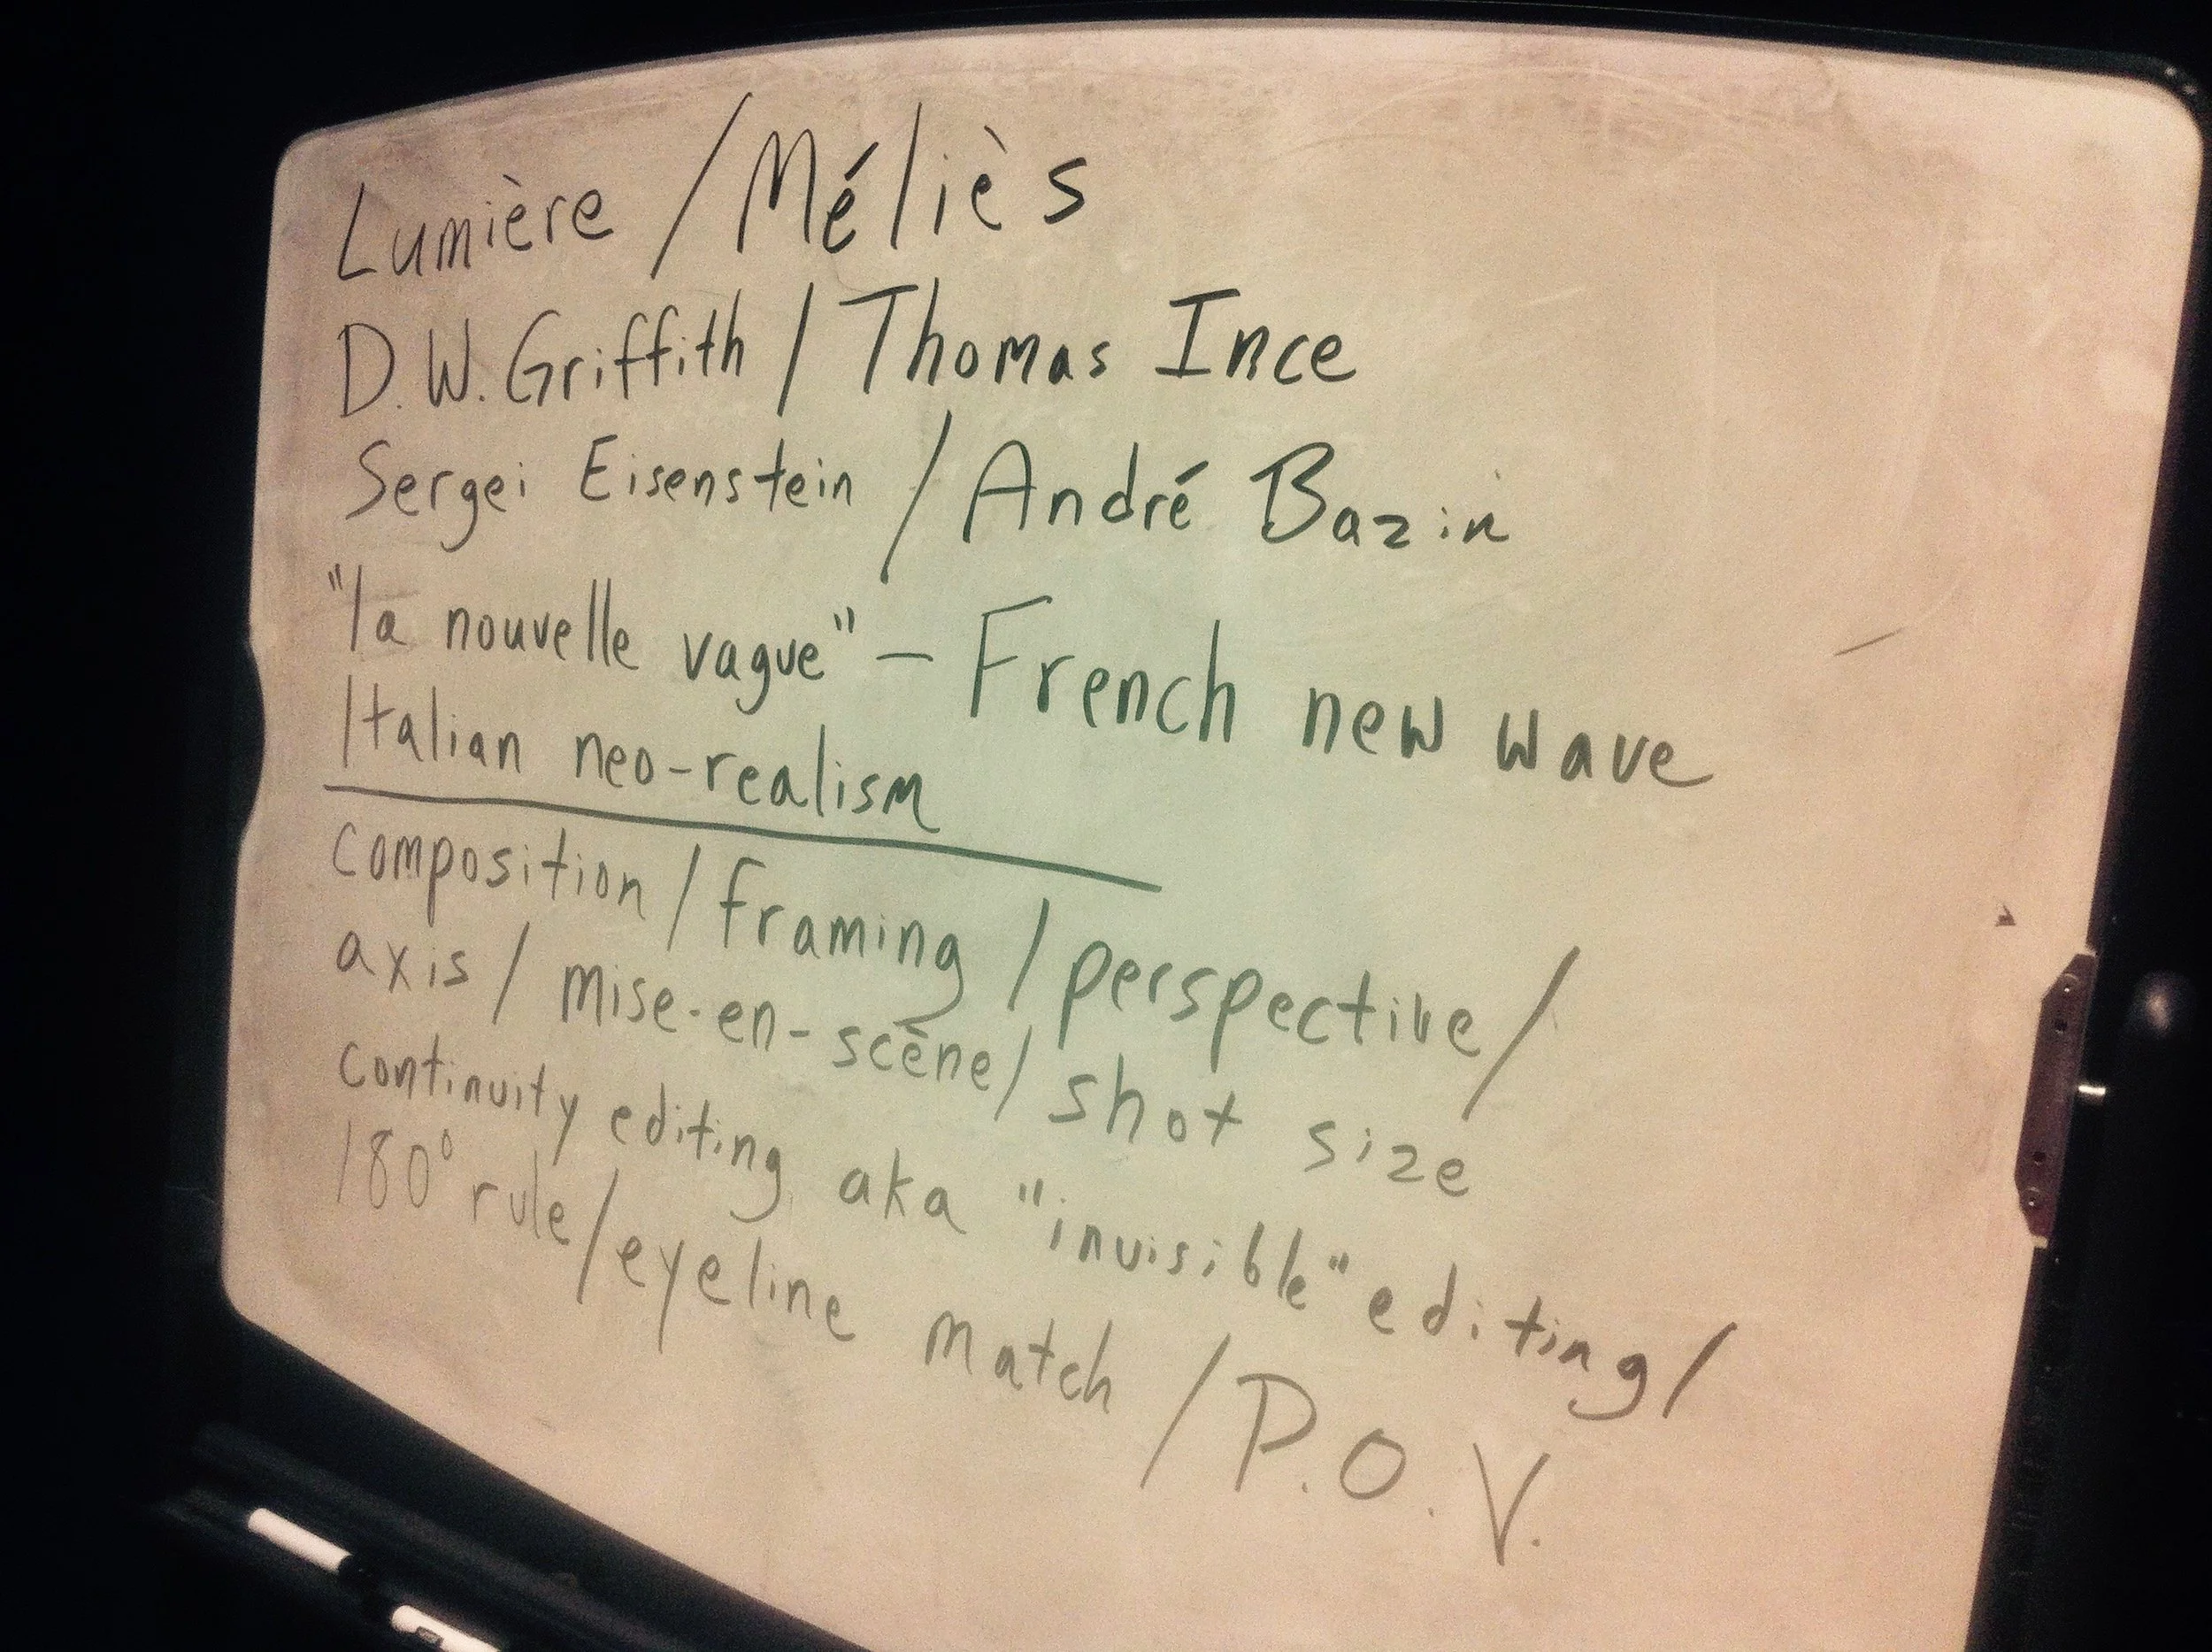 Lumière / Méliès
D.W. Griffith / Thomas Ince
Sergei Eisenstein / André Bazin
"la nouvelle vague" – French new wave
Italian neo-realism
composition / framing / perspective /
axis / mise-en-scène / shot size
continuity editing aka "invisible" editing /
180° rule / eyeline match / P.O.V.